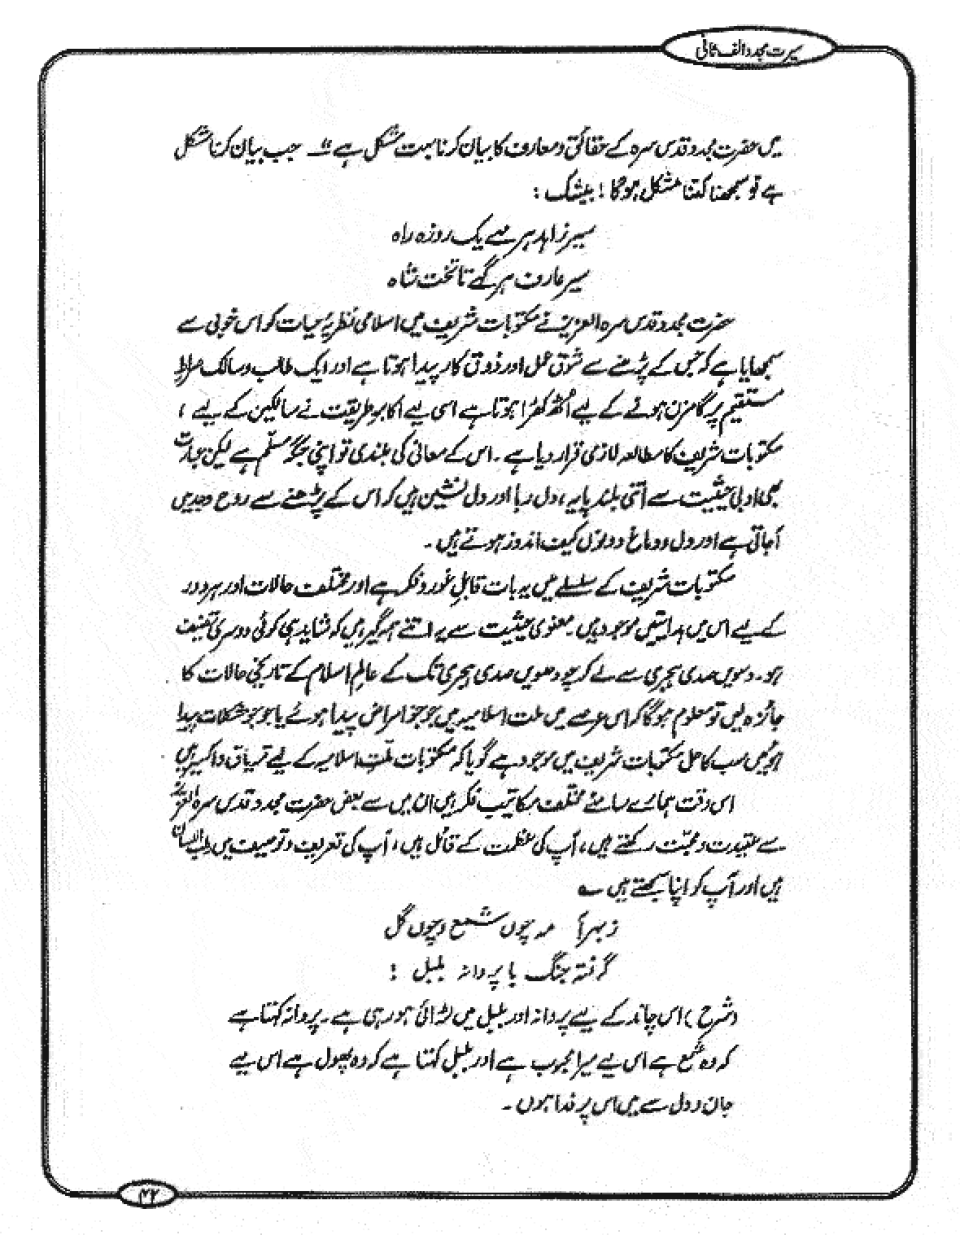 سیرت مجدد الف ثانی
میں حضرت مجدد قدس سرہ کے حقائق و معارف کا بیان کرنا بہت مشکل ہے"۔ جب بیان کرنا مشکل
ہے تو سمجھنا کتنا مشکل ہوگا! بیشک :
سیر زاہد ہر مہے یک روزہ راہ
سیر عارف ہر گہے تا تخت شاہ
حضرت مجدد قدس سرہ العزیز نے مکتوبات شریف میں اسلامی نظریۂ حیات کو اس خوبی سے
سمجھایا ہے کہ جس کے پڑھنے سے شوق عمل اور ذوق کار پیدا ہوتا ہے اور ایک طالب و سالک صراط
مستقیم پر گامزن ہونے کے لیے اُٹھ کھڑا ہوتا ہے اسی لیے اکابر طریقت نے سالکین کے لیے ،
مکتوبات شریف کا مطالعہ لازمی قرار دیا ہے ۔ اس کے معانی کی بلندی تو اپنی جگہ مسلّم ہے لیکن عبارت
بھی ادبی حیثیت سے اتنی بلند پایہ، دل ربا اور دل نشین ہیں کہ اس کے پڑھنے سے روح وجد میں
آجاتی ہے اور دل و دماغ دونوں کیف اندوز ہوتے ہیں ۔
مکتوبات شریف کے سلسلے میں یہ بات قابل غور و فکر ہے اور مختلف حالات اور ہر دور
کے لیے اس میں ہدایتیں موجود ہیں ۔ معنوی حیثیت سے یہ اتنے ہمہ گیر ہیں کہ شاید ہی کوئی دوسری تصنیف
ہو۔ دسویں صدی ہجری سے لے کر چودھویں صدی ہجری تک کے عالم اسلام کے تاریخی حالات کا
جائزہ لیں تو معلوم ہوگا کہ اس عرصے میں ملت اسلامیہ میں جو جو امراض پیدا ہوئے یا جو جو مشکلات پیدا
ہوئیں سب کا حل مکتوبات شریف میں موجود ہے گویا کہ مکتوبات ملّتِ اسلامیہ کے لیے تریاق و اکسیر ہیں
اس وقت ہمارے سامنے مختلف مکاتیب فکر ہیں ان میں سے بعض حضرت مجدد قدس سرہ العزیز
سے عقیدت و محبّت رکھتے ہیں، آپ کی عظمت کے قائل ہیں، آپ کی تعریف و توصیف میں رطب اللسان
ہیں اور آپ کو اپنا سمجھتے ہیں ؎
زبہر آں مہ چوں شمع و چوں گل
گرفتہ جنگ با پروانہ بلبل :
(شرح) اس چاند کے لیے پروانہ اور بلبل میں لڑائی ہو رہی ہے ۔ پروانہ کہتا ہے
کہ وہ شمع ہے اس لیے میرا محبوب ہے اور بلبل کہتا ہے کہ وہ پھول ہے اس لیے
جان و دل سے میں اس پر فدا ہوں ۔
۴۲